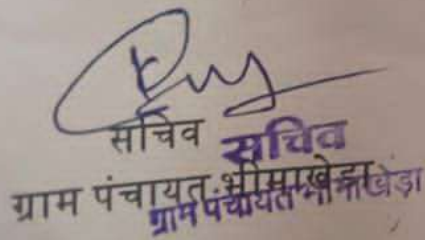 सचिव सचिव
ग्राम पंचायत भीमाखेड़ा
ग्राम पंचायत भीमाखेड़ा